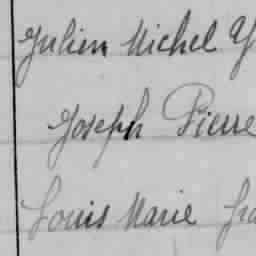 Julien Michel
Joseph Pierre
Louis Marie